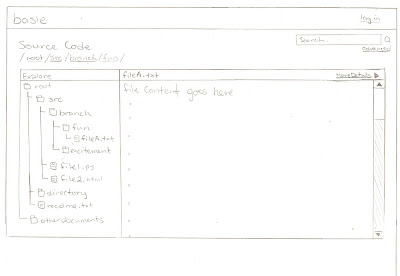 basie
log in
Search...
advanced
Source Code
/ root / src / branch / fun /
Explore
fileA.txt
More Details
root
file content goes here
src
branch
fun
fileA.txt
excitement
file1.ps
file2.html
directory
readme.txt
other documents